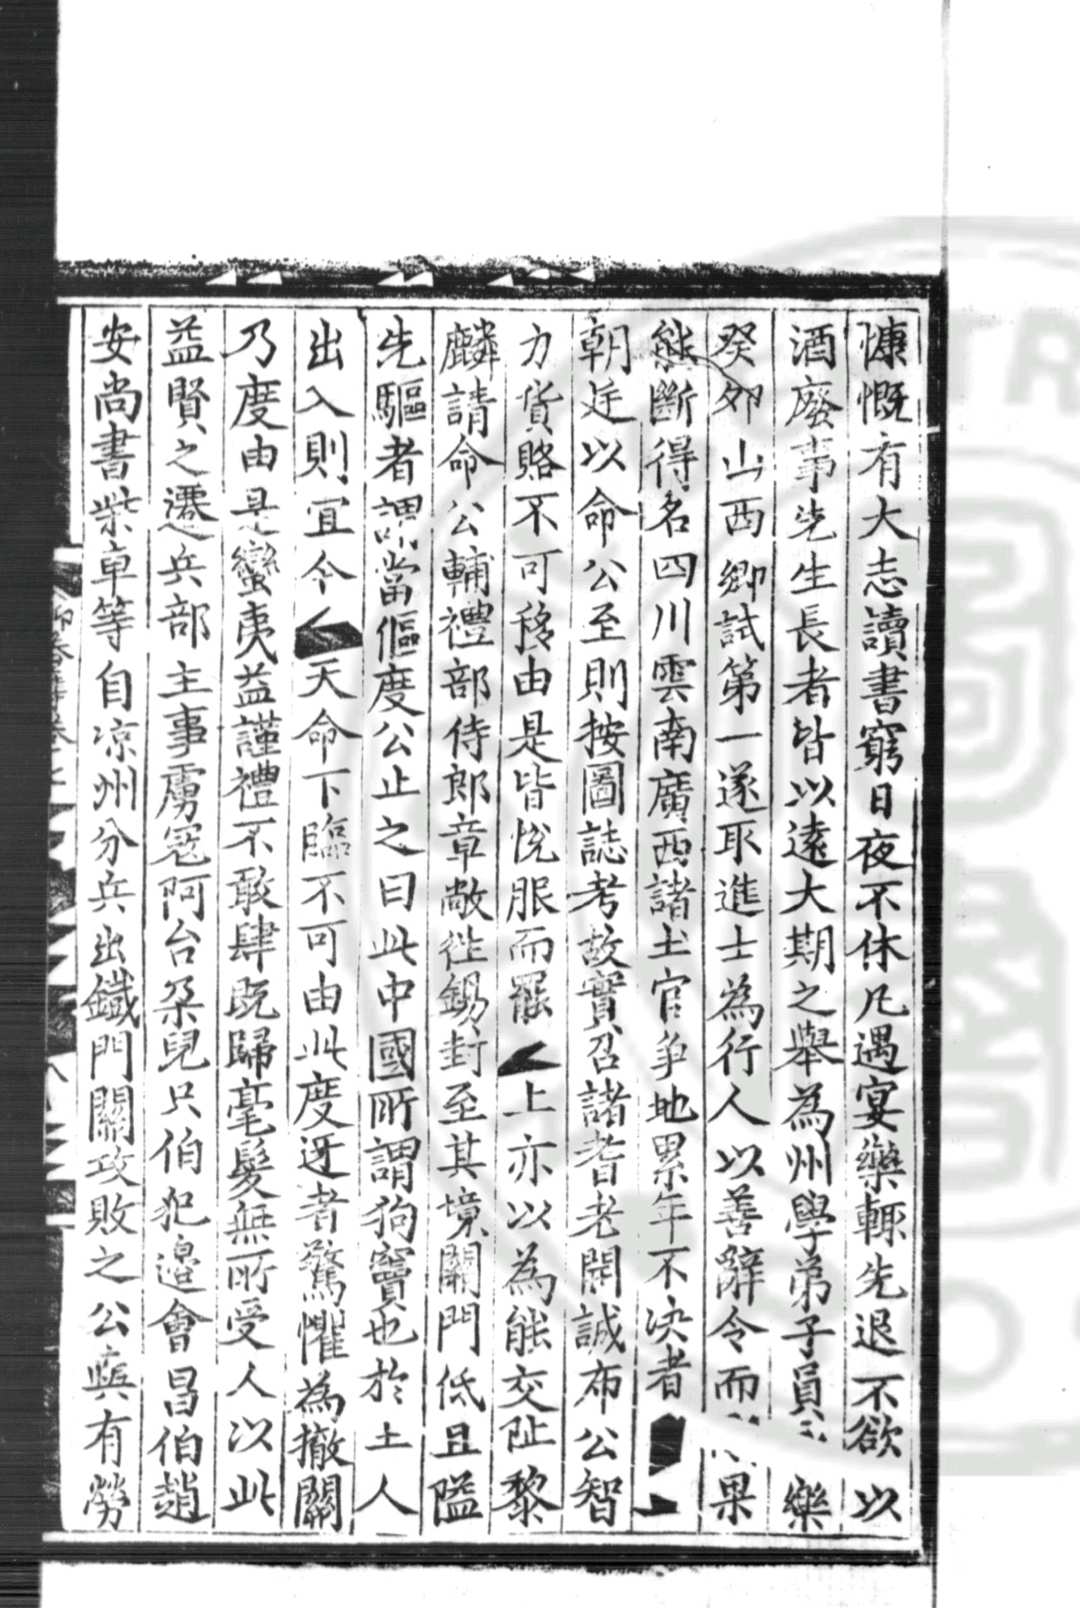 慷慨有大志讀書窮日夜不休凡遇宴樂輒先退不欲以
酒廢事先生長者皆以遠大期之舉為州學弟子員 樂
癸夘山西鄉試第一遂取進士為行人以善辭令而 果
能斷得名四川雲南廣西諸土官爭地累年不決者
朝廷以命公至則按圖誌考故實召諸耆老開誠布公智
力貨賂不可移由是皆悅服而罷 上亦以為能交阯黎
麟請命公輔禮部侍郎章敞徃錫封至其境關門低且隘
先驅者謂當傴度公止之曰此中國所謂狗竇也於土人
出入則宜今 天命下臨不可由此度迓者驚懼為撤關
乃度由是蠻夷益謹禮不敢肆旣歸毫髮無所受人以此
益賢之遷兵部主事虜宼阿台朶兒只伯犯邊會昌伯趙
安尚書柴車等自凉州分兵出鐵門關攻敗之公與有勞